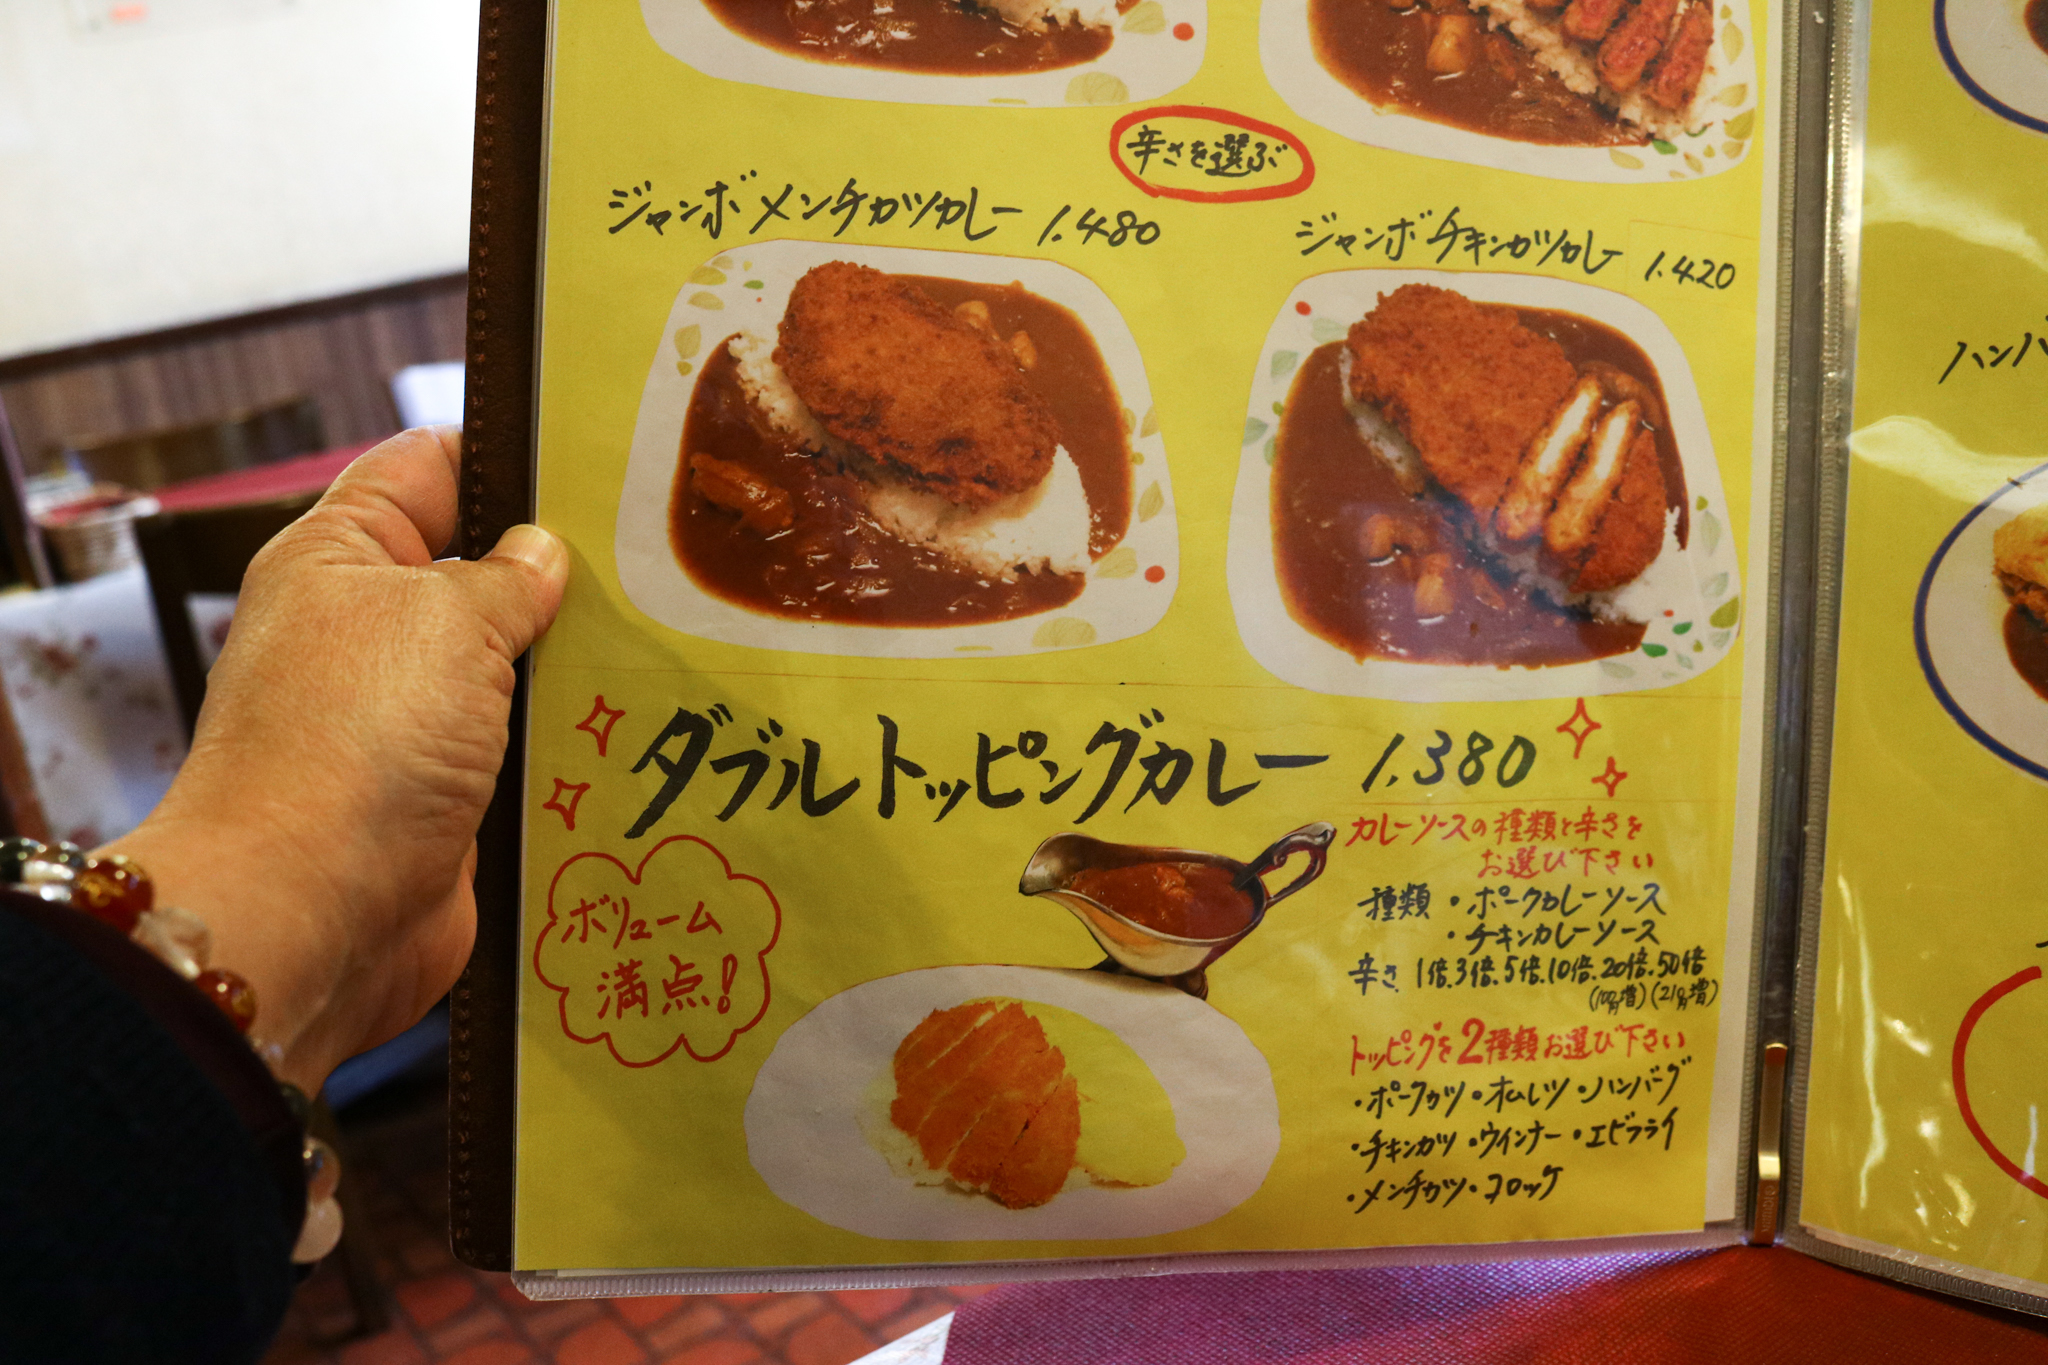 辛さを選ぶ
ジャンボメンチカツカレー 1.480
ジャンボチキンカツカレー 1.420
ダブルトッピングカレー 1.380
ボリューム
満点!
カレーソースの種類と辛さを
お選び下さい
種類・ポークカレーソース
・チキンカレーソース
辛さ 1倍.3倍.5倍.10倍.20倍.50倍
トッピングを2種類お選び下さい
・ポークカツ・オムレツ・ハンバーグ
・チキンカツ・ウインナー・エビフライ
・メンチカツ・コロッケ
ハンバ